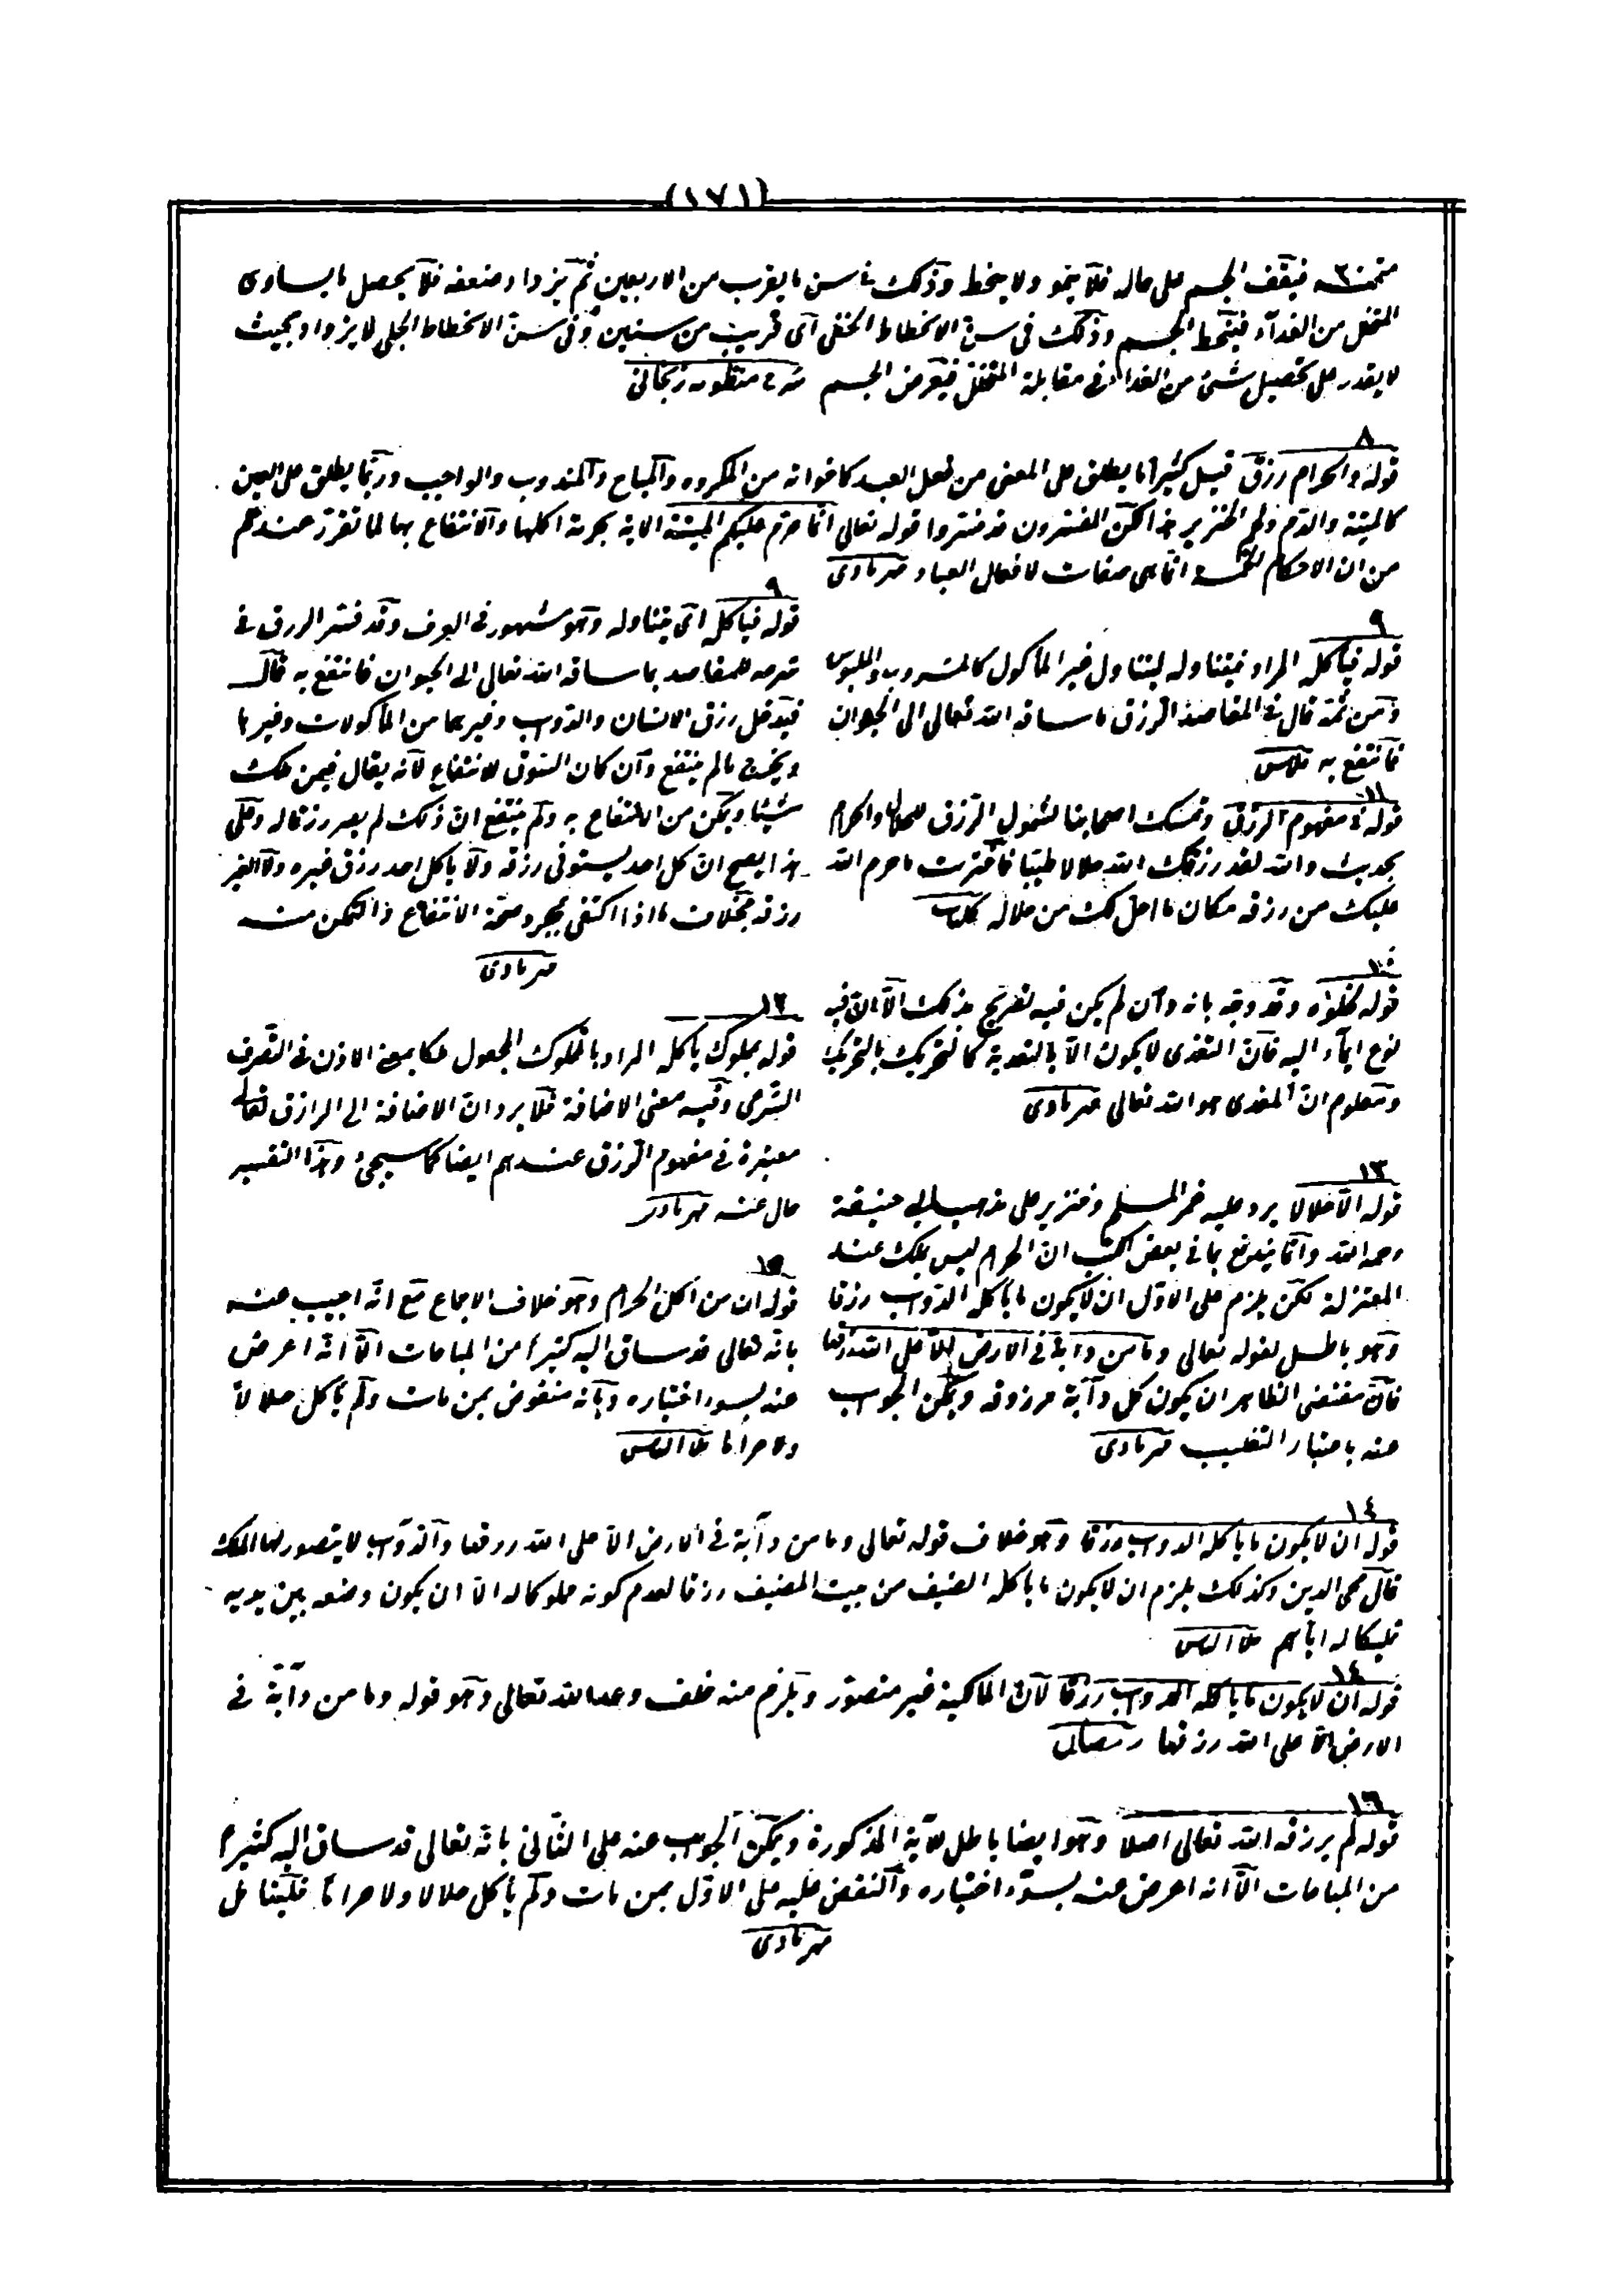 (١٧١)
فيقف الجسم على حاله فلا ينمو ولا ينحط وذلك فى سن ما يقرب من الاربعين ثم يزداد ضعفه فلا يحصل ما يساوى
المتحلل من الغداء فينحط الجسم وذلك فى سن الانحطاط الخفى اى قريب من ستين وفى سن الانحطاط الجلى لا يزداد بحيث
لا يقدر على تحصيل شئ من الغداء فى مقابلة المتحلل فيعرض الجسم شرح منظومه زنجانى
٨
قوله والحرام رزق قيل كثيرا ما يطلق على المعنى من فعل العبد كاخواته من المكروه والمباح والمندوب والواجب وربما يطلق على العين
كالميتة والدم ولحم الخنزير هذا لكن المفسرون قد فسروا قوله تعالى انما حرم عليكم الميتة الاية بحرمة اكلها والانتفاع بها لما تقرر عندهم
من ان الاحكام الخمسة انما هى صفات لافعال العباد مهربادى
٩
قوله فيأكله المراد فيتناوله ليتناول غير المأكول كالمشروب والملبوس
ومن ثمة قال فى المقاصد الرزق ما ساقه الله تعالى الى الحيوان
فانتفع به
١١
قوله فى مفهوم الرزق وتمسك اصحابنا لشمول الرزق للحلال والحرام
بحديث والله لقد رزقك الله حلالا طيبا فاخترت ما حرم الله
عليك من رزقه مكان ما احل لك من حلاله
١٠
قوله لخلوه وقد وجه بانه وان لم يكن فيه تصريح بذلك الا ان فيه
نوع ايماء اليه فان التغذى لا يكون الا بالتغدية كالتحريك بالتحرك
ومعلوم ان المغدى هو الله تعالى مهربادى
١٣
قوله الا حلالا يرد عليه خمر المسلم وخنزير على مذهب ابى حنيفة
رحمه الله وانما يندفع بما فى بعض الكتب ان الحرام ليس بملك عند
المعتزلة لكن يلزم على الاول ان لا يكون ما يأكله الدواب رزقا
وهو باطل لقوله تعالى وما من دابة فى الارض الا على الله رزقها
فان مقتضى الظاهر ان يكون كل دآبة مرزوقه ويمكن الجواب
عنه باعتبار التغليب مهربادى
٩
قوله فيأكله اى يتناوله وهو مشهور فى العرف وقد فسر الرزق فى
شرحه للمقاصد بما ساقه الله تعالى الى الحيوان فانتفع به قال
فيدخل رزق الانسان والدواب وغيرهما من المأكولات وغيرها
ويخرج ما لم ينتفع وان كان السوق للانتفاع لانه يقال فيمن ملك
شيئا ويمكن من الانتفاع به ولم ينتفع ان ذلك لم يصر رزقا له وعلى
هذا يصح ان كل احد يستوفى رزقه ولا يأكل احد رزق غيره ولا الغير
رزقه بخلاف ما اذا اكتفى بمجرد صحة الانتفاع والتمكن منه
مهربادى
١٢
قوله بمملوك يأكله المراد بالمملوك المجعول ملكا بمعنى الاذن فى التصرف
الشرعى وفيه معنى الاضافة فلا يرد ان الاضافة الى الرازق تعالى
معتبرة فى مفهوم الرزق عندهم ايضا كما سيجئ وهذا التفسير
خال عنه مهربادى
١٥
قوله ان من اكل الحرام وهو خلاف الاجماع مع انه اجيب عنه
بانه تعالى قد ساق اليه كثيرا من المباحات الا انه اعرض
عنه بسوء اختياره وبانه منقوض بمن مات ولم يأكل حلالا
ولا حراما ملا الياس
١٤
قوله ان لا يكون ما يأكله الدواب رزقا وهو خلاف قوله تعالى وما من دآبة فى الارض الا على الله رزقها والدواب لا يتصور لها الملك
قال محى الدين وكذلك يلزم ان لا يكون ما يأكله الضيف من بيت المضيف رزقا لعدم كونه مملوكا له الا ان يكون وضعه بين يديه
تمليكا له اياهم ملا الياس
١٤
قوله ان لا يكون ما يأكله الدواب رزقا لان المالكية غير متصور ويلزم منه خلف وعد الله تعالى وهو قوله وما من دآبة فى
الارض الا على الله رزقها
١٦
قوله لم يرزقه الله تعالى اصلا وهو ايضا باطل للآية المذكورة ويمكن الجواب عنه على الثانى بانه تعالى قد ساق اليه كثيرا
من المباحات الا انه اعرض عنه بسوء اختياره والنقض عليه على الاول بمن مات ولم يأكل حلالا ولا حراما فليتأمل
مهربادى